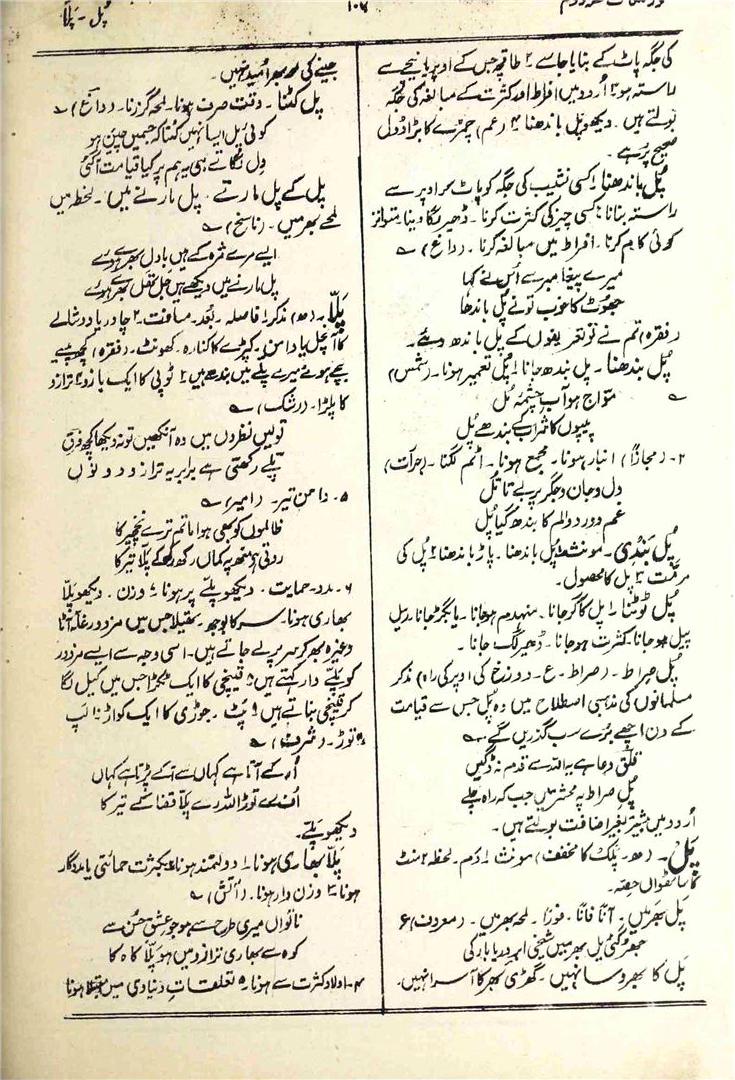 پُل - پَلّا
۱۰۴
کی جگہ پاٹ کے بنایا جاسے ۲ طاقچہ جس کے اوپر یا نیچے سے
راستہ ہو ۳ اُردو میں افراط اور کثرت کے مبالغہ کی جگہ
بولتے ہیں۔ دیکھو پل باندھنا ۴ (عم) چمڑے کا بڑا ڈول
صحیح پُر ہے۔
پُل باندھنا ۱ کسی نشیب کی جگہ کو پاٹ کر اوپر سے
راستہ بنانا ۲ کسی چیز کی کثرت کرنا۔ ڈھیر لگا دینا متواتر
کوئی کام کرنا۔ افراط میں مبالغہ کرنا۔ (داغ) ؎
میرے پیغامبر سے اُس نے کہا
جھوٹ کا خوب تونے پُل باندھا
(فقرہ) تم نے تو تعریفوں کے پل باندھ دئے۔
پُل بندھنا۔ پل بندھ جانا ۱ پُل تعمیر ہونا۔ (شمس)
؎ موّاج ہو آبِ چشمۂ مُل
پیپوں کا شراب کے بندھے پُل
۲- (مجازاً) انبار ہونا۔ مجمع ہونا۔ اٹم لگنا۔ (جرأت)
دل و جان و جگر پر بے تأمّل
غم و درد و الم کا بندھ گیا پُل
پُل بَندی۔ مونث ۱ پُل باندھنا۔ پاڑ باندھنا ۲ پُل کی
مرمّت ۳ پل کا محصول۔
پُل ٹوٹنا ۱ پل کا گر جانا۔ منہدم ہو جانا۔ یا بگڑ جانا ۲ ریل
پیل ہو جانا۔ کثرت ہو جانا۔ ڈھیر لگ جانا۔
پُل صِراط۔ (صراط۔ ع۔ دوزخ کی اوپر کی راہ) مذکر
مسلمانوں کی مذہبی اصطلاح میں وہ پُل جس سے قیامت
کے دن اچھے بُرے سب گذریں گے۔ ؎
قلق دعا ہے یہ اللہ سے قدم نہ ڈگیں
پُلِ صراط پہ محشر میں جب کہ راہ چلے
اُردو میں بیشتر بغیر اضافت بولتے ہیں۔
پَل۔ (ھ۔ پلک کا مخفف) مونث ۱ دَم۔ لحظہ ۲ منٹ
کا ساٹھواں حصّہ۔
پَل بھر میں۔ آناً فاناً۔ فوراً۔ لمحہ بھر میں۔ (معروف) ؏
جھڑ گئی پل بھر میں شیخی ابرِ دریا بار کی
پَل کا بھروسا نہیں۔ گھڑی بھر کا آسرا نہیں۔
جینے کی دم بھر اُمید نہیں۔
پَل کٹنا۔ وقت صرف ہونا۔ لمحہ گزرنا۔ (داغ) ؎
کوئی پَل ایسا نہیں کٹتا کہ جسمیں چین ہو
دل لگاتے ہی یہ ہم پر کیا قیامت آگئی
پَل کے پَل مارتے۔ پَل مارنے میں۔ لحظہ میں
لمحے بھر میں۔ (ناسخ) ؎
ایسے مرے مژہ کے ہیں بادل بھرے ہوئے
پل مارنے میں دیکھے ہیں جل تھل بھرے ہوئے
پَلّا۔ (ھ) مذکر ۱ فاصلہ۔ بُعد۔ مسافت۔ ۲ چادر یا دوشالے
کا آنچل یا دامن۔ کپڑے کا کنارہ۔ کھونٹ۔ (فقرہ) کچھ پیسے
بچے ہوئے میرے پلّے میں بندھے ہیں ۳ ٹوپی کا ایک بازو ۴ ترازو
کا پلڑا۔ (رشک) ؎
تولیں نظروں میں وہ آنکھیں تو نہ دیکھا کچھ فرق
پلّے رکھتی ہے برابر یہ ترازو دونوں
۵- دامنِ تیر۔ (امیر) ؎
ظالموں کو بھی ہوا ماتم ترے نخچیر کا
روتی ہے منھ پہ کماں رکھ رکھ کے پَلّا تیر کا
۶- مدد۔ حمایت۔ دیکھو پلّے پر ہونا ۷ وزن۔ دیکھو پلّا
بھاری ہونا۔ سر کا بوجھ۔ تھیلا جس میں مزدور غلّہ آٹا
وغیرہ بھر کر سر پر لے جاتے ہیں۔ اسی وجہ سے ایسے مزدور
کو پلّے دار کہتے ہیں ۸ قینچی کا ایک ٹکڑا جس میں کیل لگا
کر قینچی بناتے ہیں ۹ پٹ۔ جوڑی کا ایک کواڑ ۱۰ لپ
توڑ۔ (شرف) ؎
اُڑ کے آتا ہے کہاں سے آکے پڑتا ہے کہاں
اُف رے توڑ اللہ رے پلّا قضا کے تیر کا
دیکھو پلّے۔
پَلّا بھاری ہونا۔ ۱ دولتمند ہونا ۲ بکثرت حمائتی یا مددگار
ہونا ۳ وزن دار ہونا۔ (آتش) ؎
ناتواں میری طرح سے ہو جو عشقِ حسن سے
کوہ سے بھاری ترازو میں ہو پَلّا کاہ کا
۴- اولاد کثرت سے ہونا ۵ تعلقاتِ دنیاوی میں مبتلا ہونا